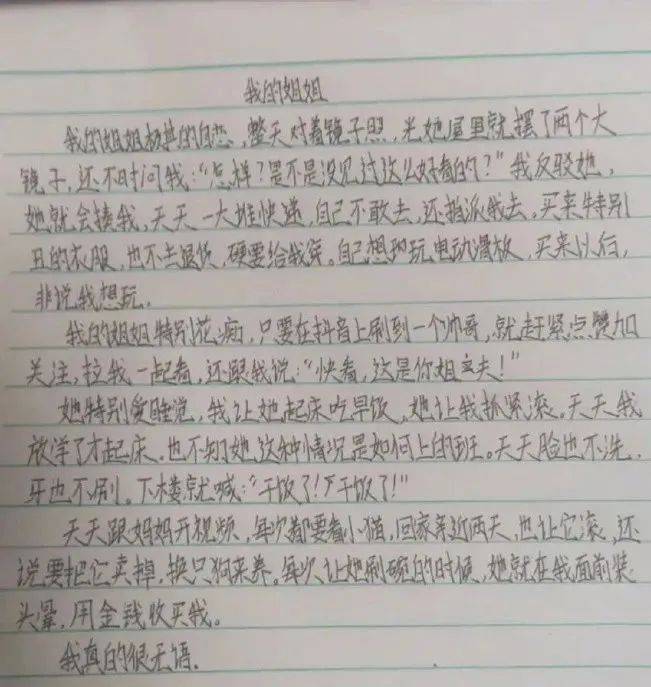 我的姐姐
我的姐姐极其的自恋，整天对着镜子照，光她屋里就摆了两个大
镜子，还不时问我：“怎样？是不是没见过这么好看的？”我反驳她，
她就会揍我，天天一大堆快递，自己不敢去，还指派我去，买来特别
丑的衣服，也不去退货，硬要给我穿。自己想玩电动滑板，买来以后，
非说我想玩．
我的姐姐特别花痴，只要在抖音上刷到一个帅哥，就赶紧点赞加
关注，拉我一起看，还跟我说：“快看，这是你姐夫！”
她特别爱睡觉，我让她起床吃早饭，她让我抓紧滚。天天我
放学了才起床．也不知她这种情况是如何上的班。天天脸也不洗．
牙也不刷。下楼就喊：“干饭了！干饭了！”
天天跟妈妈开视频，每次都要看小猫，回家亲近两天，也让它滚，还
说要把它卖掉，换只狗来养。每次让她刷碗的时候，她就在我面前装
头晕，用金钱收买我。
我真的很无语．